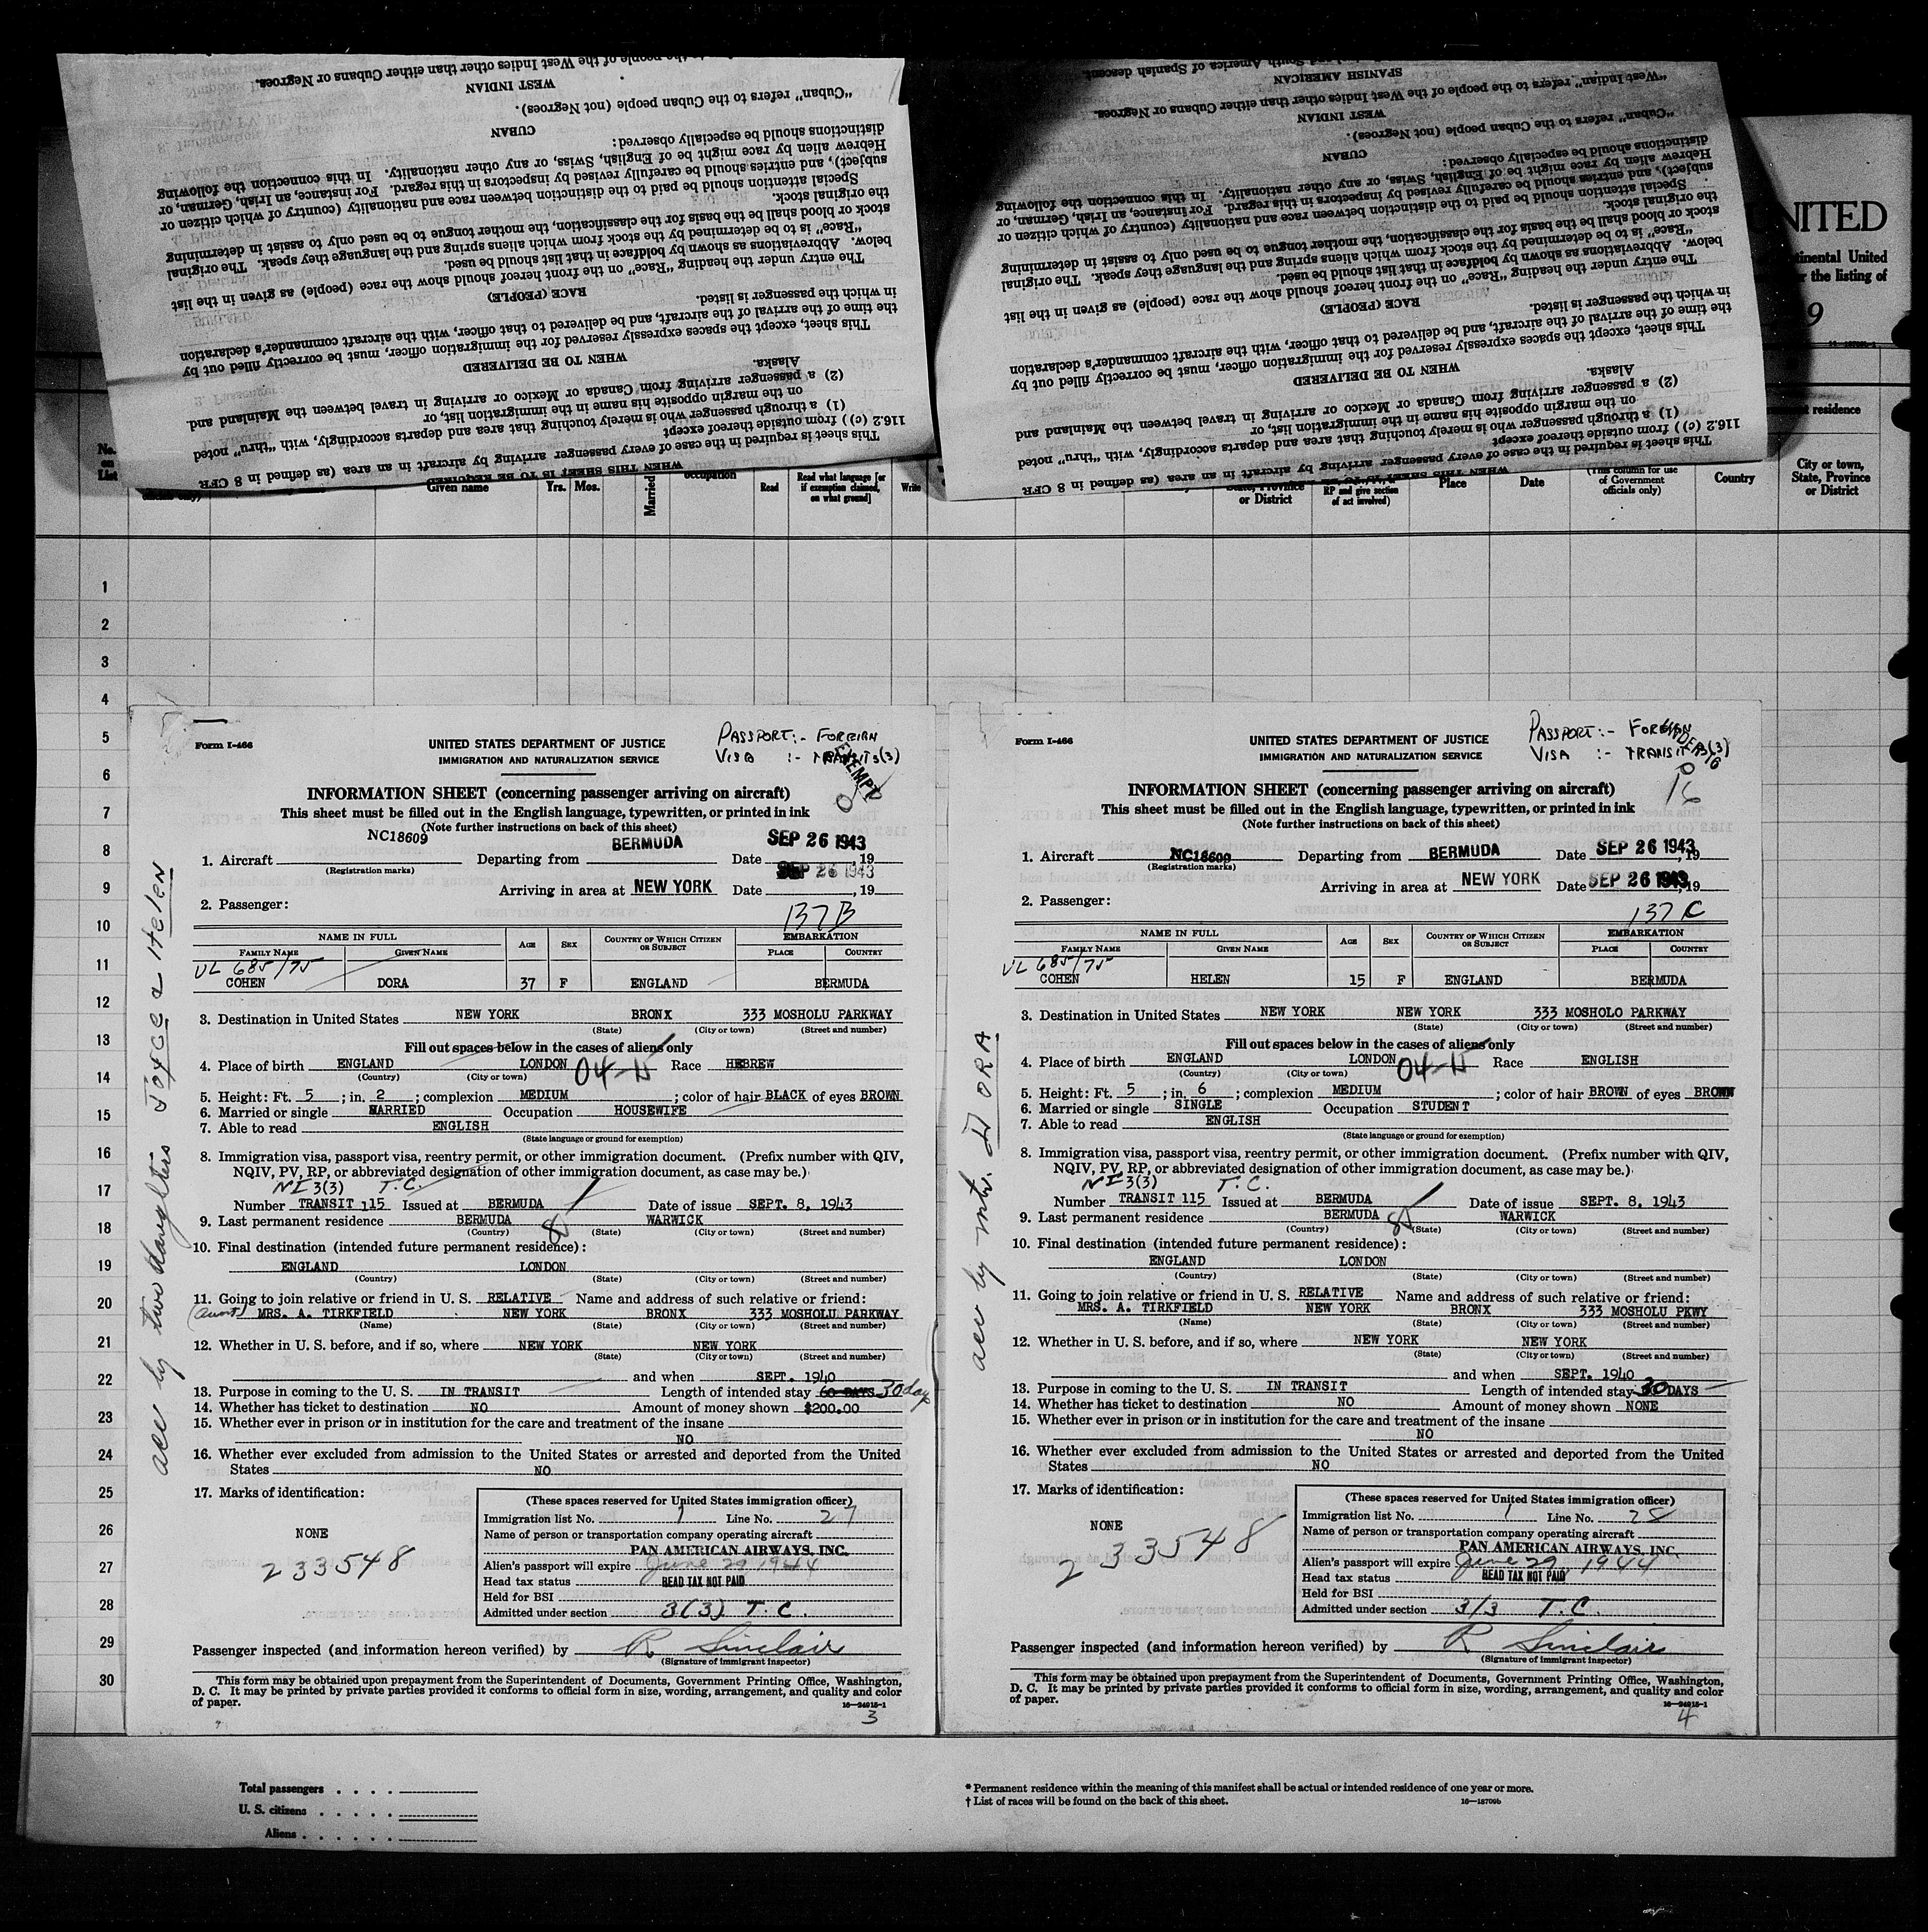 to the people of the West Indies other than either Cubans or Negroes.
WEST INDIAN
"Cuban" refers to the people of Cuban people (not Negroes).
CUBAN
distinctions should be especially observed:
Hebrew alien by race might be of English, Swiss, or any other nationality. In this connection the following
subject), and entries should be carefully revised by inspectors in this regard. For instance, an Irish, German, or
Special attention should be paid to the distinction between race and nationality (country of which citizen or
the original stock.
stock or blood shall be the basis for the classification, the mother tongue to be used only to assist in determining
"Race" is to be determined by the stock from which aliens spring and the language they speak. The original
below. Abbreviations as shown by boldface in that list should be used.
The entry under the heading "Race" on the front hereof should show the race (people) as given in the list
RACE (PEOPLE)
in which the passenger is listed.
the time of the arrival of the aircraft, and be delivered to that officer, with the aircraft commander's declaration
This sheet, except the spaces expressly reserved for the immigration officer, must be correctly filled out by
WHEN TO BE DELIVERED
Alaska.
(2) a passenger arriving from Canada or Mexico or arriving in travel between the Mainland and
on the margin opposite his name in the immigration list, or
(1) a through passenger who is merely touching that area and departs accordingly, with "thru" noted
116.2 (c)) from outside thereof except
This sheet is required in the case of every passenger arriving by aircraft in an area (as defined in 8 CFR
WHEN THIS SHEET IS TO BE REQUIRED
and South America of Spanish descent
SPANISH AMERICAN
"West Indian" refers to the people of the West Indies other than either Cubans or Negroes.
WEST INDIAN
"Cuban" refers to the Cuban people (not Negroes).
CUBAN
distinctions should be especially observed:
Hebrew alien by race might be of English, Swiss, or any other nationality. In this connection the following
subject), and entries should be carefully revised by inspectors in this regard. For instance, an Irish, German, or
Special attention should be paid to the distinction between race and nationality (country of which citizen or
the original stock.
stock or blood shall be the basis for the classification, the mother tongue to be used only to assist in determining
"Race" is to be determined by the stock from which aliens spring and the language they speak. The original
below. Abbreviations as shown by boldface in that list should be used.
The entry under the heading "Race" on the front hereof should show the race (people) as given in the list
RACE (PEOPLE)
in which the passenger is listed.
the time of the arrival of the aircraft, and be delivered to that officer, with the aircraft commander's declaration
This sheet, except the spaces expressly reserved for the immigration officer, must be correctly filled out by
WHEN TO BE DELIVERED
Alaska.
(2) a passenger arriving from Canada or Mexico or arriving in travel between the Mainland and
on the margin opposite his name in the immigration list, or
(1) a through passenger who is merely touching that area and departs accordingly, with "thru" noted
116.2 (c)) from outside thereof except
This sheet is required in the case of every passenger arriving by aircraft in an area (as defined in 8 CFR
WHEN THIS SHEET IS TO BE REQUIRED
NITED
tinental United
r the listing of
9
residence
No. on List
Given name Yrs. Mos. Married occupation Read Read what language [or if exemption claimed, on what ground] Write
State, Province or District RP and give section of act involved) Place Date (This column for use of Government officials only) Country City or town, State, Province or District
1
2
3
4
5
6
7
8
9
10
11
12
13
14
15
16
17
18
19
20
21
22
23
24
25
26
27
28
29
30
acc by two daughters Joyce & Helen
Form I-466
PASSPORT:- FOREIGN
VISA :- TRANSIT 3(3)
EXEMPT
UNITED STATES DEPARTMENT OF JUSTICE
IMMIGRATION AND NATURALIZATION SERVICE
INFORMATION SHEET (concerning passenger arriving on aircraft)
This sheet must be filled out in the English language, typewritten, or printed in ink
(Note further instructions on back of this sheet)
1. Aircraft NC18609 Departing from BERMUDA Date SEP 26 1943, 19
(Registration marks)
Arriving in area at NEW YORK Date SEP 26 1943, 19
2. Passenger:
137B
NAME IN FULL AGE SEX COUNTRY OF WHICH CITIZEN OR SUBJECT EMBARKATION
FAMILY NAME GIVEN NAME PLACE COUNTRY
VL 685/75
COHEN DORA 37 F ENGLAND BERMUDA
3. Destination in United States NEW YORK BRONX 333 MOSHOLU PARKWAY
(State) (City or town) (Street and number)
Fill out spaces below in the cases of aliens only
4. Place of birth ENGLAND LONDON 04-5 Race HEBREW
(Country) (City or town)
5. Height: Ft. 5; in. 2; complexion MEDIUM; color of hair BLACK of eyes BROWN
6. Married or single MARRIED Occupation HOUSEWIFE
7. Able to read ENGLISH
(State language or ground for exemption)
8. Immigration visa, passport visa, reentry permit, or other immigration document. (Prefix number with QIV,
NQIV, PV, RP, or abbreviated designation of other immigration document, as case may be.)
NI 3(3) T.C.
Number TRANSIT 115 Issued at BERMUDA Date of issue SEPT. 8, 1943
9. Last permanent residence BERMUDA WARWICK
(Country) (State) (City or town) (Street and number)
10. Final destination (intended future permanent residence):
ENGLAND LONDON
(Country) (State) (City or town) (Street and number)
11. Going to join relative or friend in U. S. RELATIVE Name and address of such relative or friend:
(Aunt) MRS. A. TIRKFIELD NEW YORK BRONX 333 MOSHOLU PARKWAY
(Name) (State) (City or town) (Street and number)
12. Whether in U. S. before, and if so, where NEW YORK NEW YORK
(State) (City or town) (Street and number)
and when SEPT. 1940
13. Purpose in coming to the U. S. IN TRANSIT Length of intended stay 60 DAYS 30 days
14. Whether has ticket to destination NO Amount of money shown $200.00
15. Whether ever in prison or in institution for the care and treatment of the insane
NO
16. Whether ever excluded from admission to the United States or arrested and deported from the United
States NO
17. Marks of identification:
NONE
233548
(These spaces reserved for United States immigration officer)
Immigration list No. 1 Line No. 27
Name of person or transportation company operating aircraft
PAN AMERICAN AIRWAYS, INC.
Alien's passport will expire June 29 1944
Head tax status HEAD TAX NOT PAID
Held for BSI
Admitted under section 3(3) T.C.
Passenger inspected (and information hereon verified) by R Sinclair
(Signature of immigrant inspector)
This form may be obtained upon prepayment from the Superintendent of Documents, Government Printing Office, Washington,
D. C. It may be printed by private parties provided it conforms to official form in size, wording, arrangement, and quality and color
of paper.
16—24915-1
3
acc by mtr. DORA
Form I-466
PASSPORT:- FOREIGN
VISA :- TRANSIT 3(3)
UNDER 16
16
UNITED STATES DEPARTMENT OF JUSTICE
IMMIGRATION AND NATURALIZATION SERVICE
INFORMATION SHEET (concerning passenger arriving on aircraft)
This sheet must be filled out in the English language, typewritten, or printed in ink
(Note further instructions on back of this sheet)
1. Aircraft NC18609 Departing from BERMUDA Date SEP 26 1943, 19
(Registration marks)
Arriving in area at NEW YORK Date SEP 26 1943, 19
2. Passenger:
137C
NAME IN FULL AGE SEX COUNTRY OF WHICH CITIZEN OR SUBJECT EMBARKATION
FAMILY NAME GIVEN NAME PLACE COUNTRY
VL 685/75
COHEN HELEN 15 F ENGLAND BERMUDA
3. Destination in United States NEW YORK NEW YORK 333 MOSHOLO PARKWAY
(State) (City or town) (Street and number)
Fill out spaces below in the cases of aliens only
4. Place of birth ENGLAND LONDON 04-5 Race ENGLISH
(Country) (City or town)
5. Height: Ft. 5; in. 6; complexion MEDIUM; color of hair BROWN of eyes BROWN
6. Married or single SINGLE Occupation STUDENT
7. Able to read ENGLISH
(State language or ground for exemption)
8. Immigration visa, passport visa, reentry permit, or other immigration document. (Prefix number with QIV,
NQIV, PV, RP, or abbreviated designation of other immigration document, as case may be.)
NI 3(3) T.C.
Number TRANSIT 115 Issued at BERMUDA Date of issue SEPT. 8, 1943
9. Last permanent residence BERMUDA WARWICK
(Country) (State) (City or town) (Street and number)
10. Final destination (intended future permanent residence):
ENGLAND LONDON
(Country) (State) (City or town) (Street and number)
11. Going to join relative or friend in U. S. RELATIVE Name and address of such relative or friend:
MRS. A. TIRKFIELD NEW YORK BRONX 333 MOSHOLU PKWY
(Name) (State) (City or town) (Street and number)
12. Whether in U. S. before, and if so, where NEW YORK NEW YORK
(State) (City or town) (Street and number)
and when SEPT. 1940
13. Purpose in coming to the U. S. IN TRANSIT Length of intended stay 30 DAYS
14. Whether has ticket to destination NO Amount of money shown NONE
15. Whether ever in prison or in institution for the care and treatment of the insane
NO
16. Whether ever excluded from admission to the United States or arrested and deported from the United
States NO
17. Marks of identification:
NONE
233548
(These spaces reserved for United States immigration officer)
Immigration list No. 1 Line No. 28
Name of person or transportation company operating aircraft
PAN AMERICAN AIRWAYS, INC.
Alien's passport will expire June 29, 1944
Head tax status HEAD TAX NOT PAID
Held for BSI
Admitted under section 3/3 T.C.
Passenger inspected (and information hereon verified) by R Sinclair
(Signature of immigrant inspector)
This form may be obtained upon prepayment from the Superintendent of Documents, Government Printing Office, Washington,
D. C. It may be printed by private parties provided it conforms to official form in size, wording, arrangement, and quality and color
of paper.
16—24915-1
4
Total passengers . . . .
U. S. citizens . . . . .
Aliens . . . . . .
* Permanent residence within the meaning of this manifest shall be actual or intended residence of one year or more.
† List of races will be found on the back of this sheet.
16—18709b